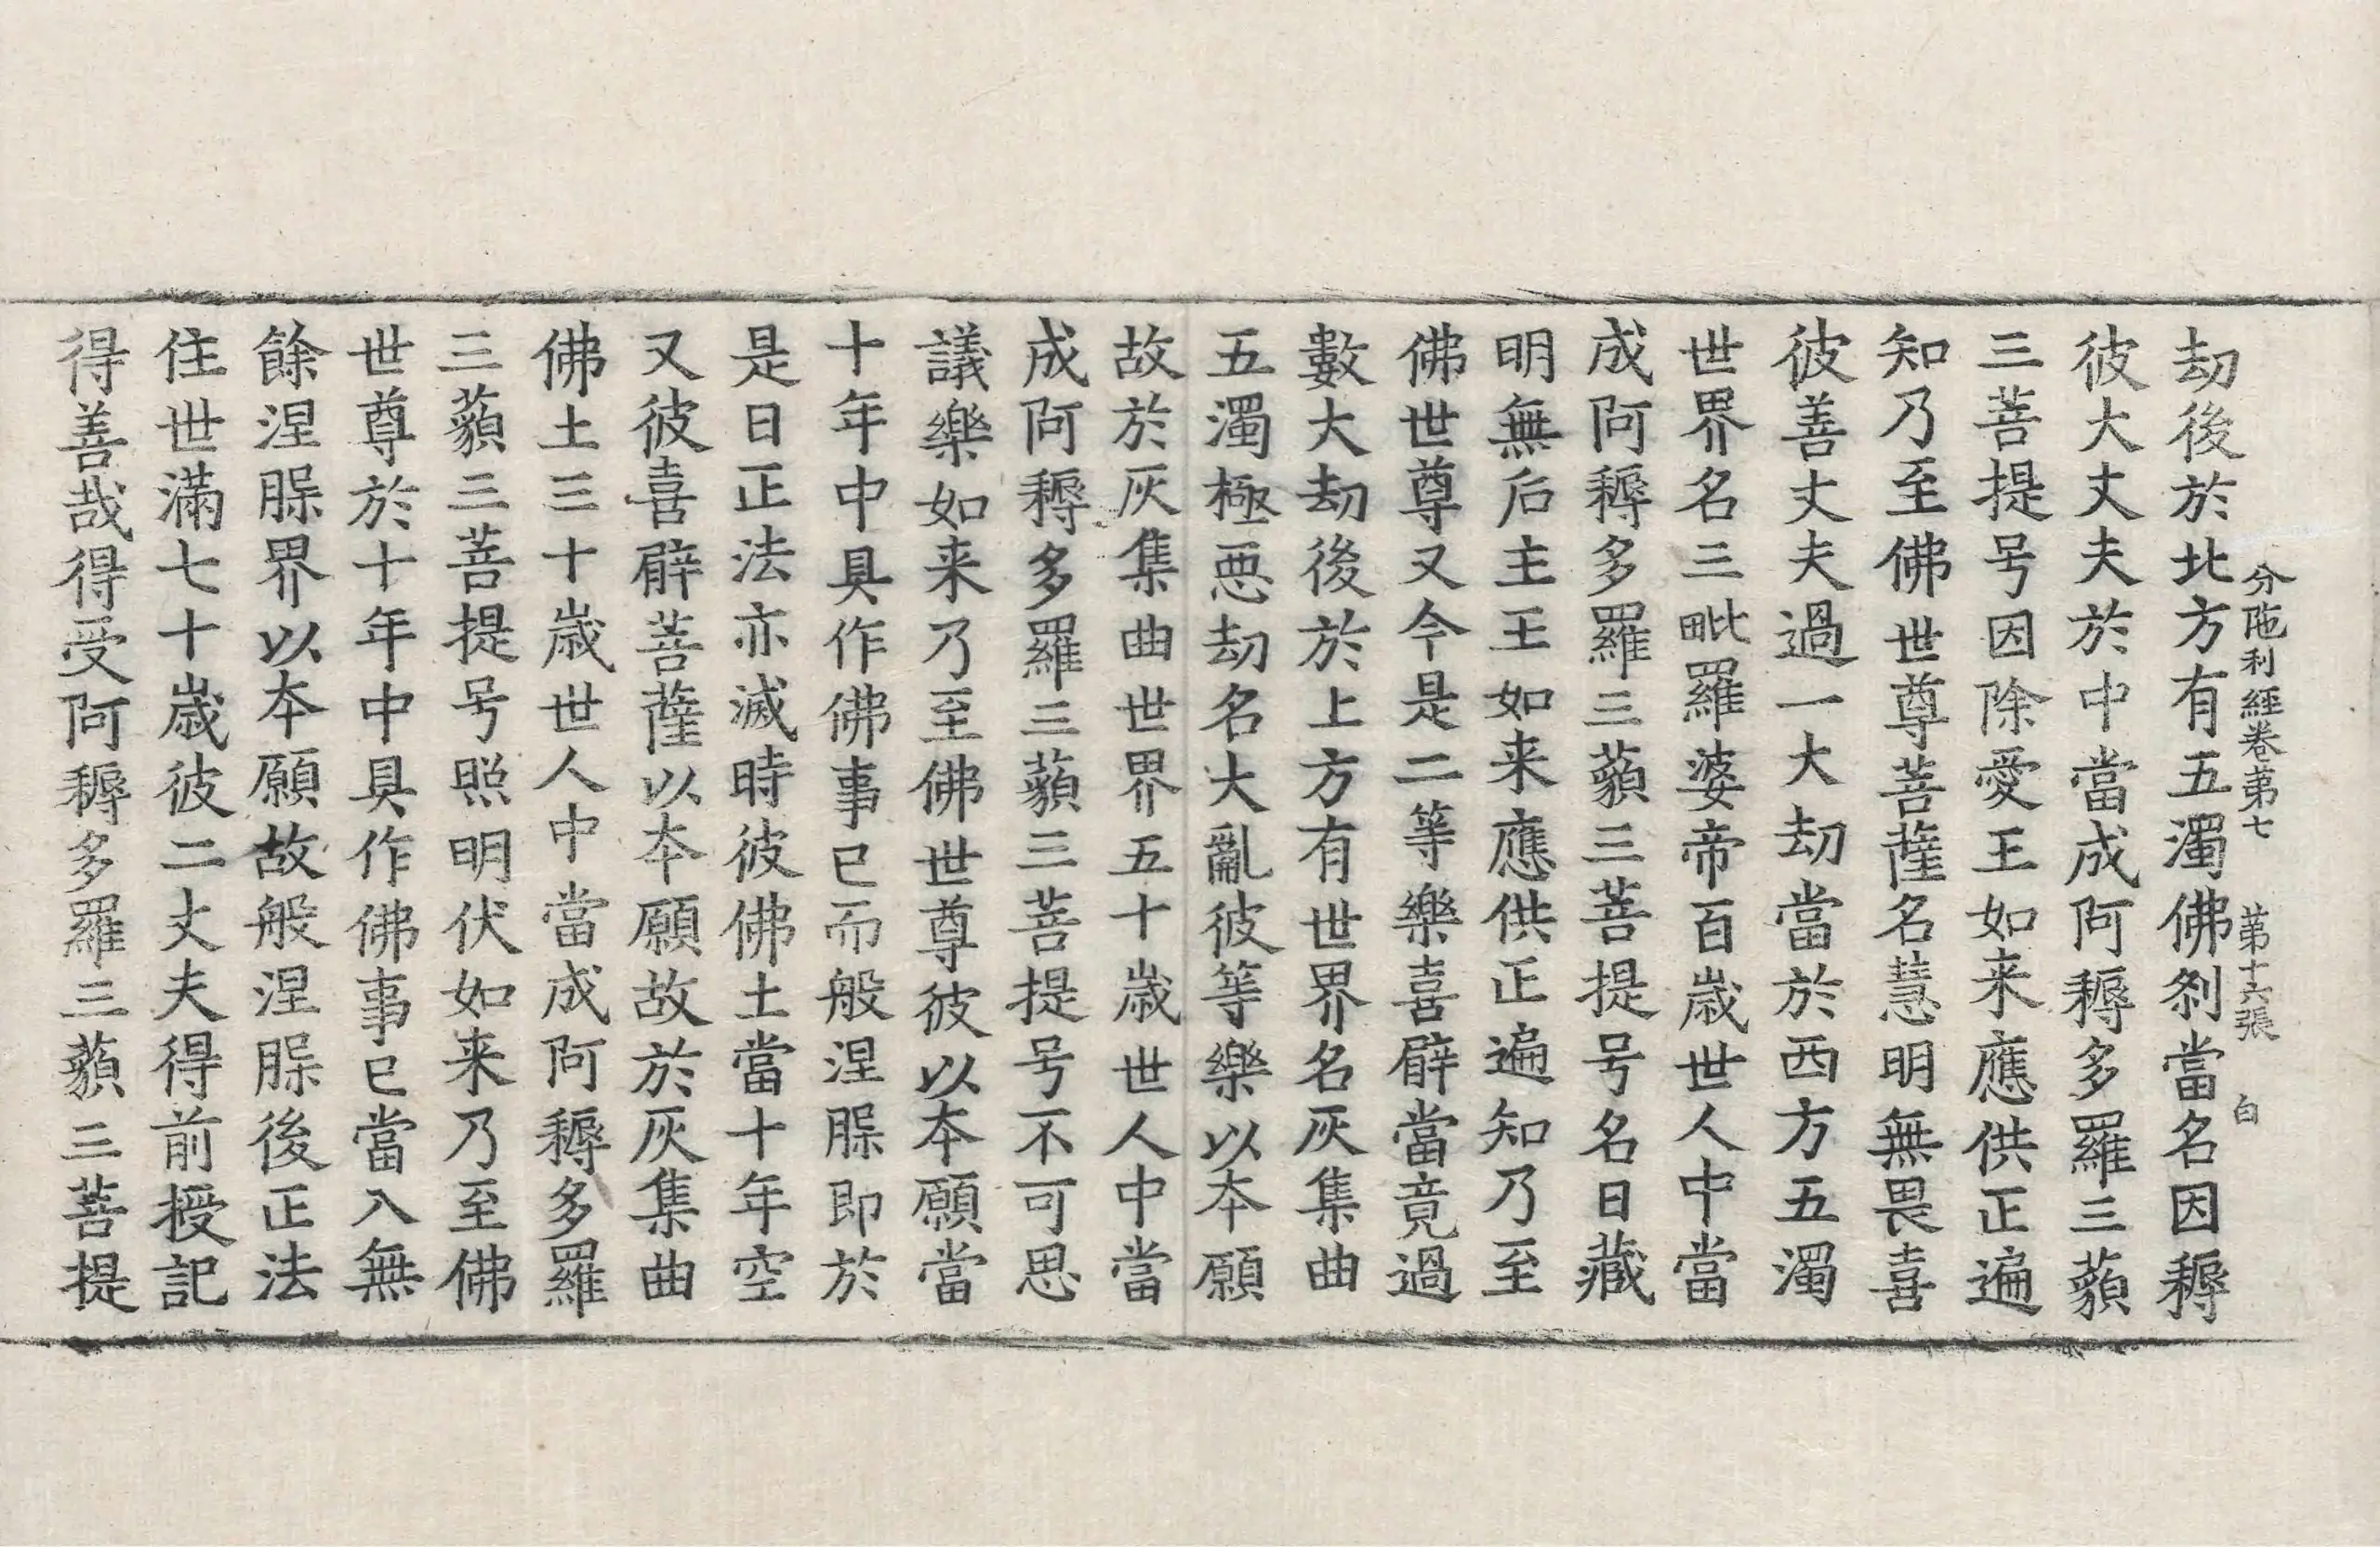 劫後於北方有五濁佛刹當名因䅵
分陁利經卷苐七　苐十六張　白
彼大丈夫於中當成阿䅵多羅三藐
三菩提号因除愛王如来應供正遍
知乃至佛世尊菩薩名慧明無畏喜
彼善丈夫過一大劫當於西方五濁
世界名三毗羅婆帝百歳世人中當
成阿䅵多羅三藐三菩提号名日藏
明無后主王如来應供正遍知乃至
佛世尊又今是二等樂喜臂當竟過
數大劫後於上方有世界名灰集曲
五濁極惡劫名大亂彼等樂以本願
故於灰集曲世界五十歳世人中當
成阿䅵多羅三藐三菩提号不可思
議樂如来乃至佛世尊彼以本願當
十年中具作佛事已而般涅槃即於
是日正法亦滅時彼佛土當十年空
又彼喜臂菩薩以本願故於灰集曲
佛土三十歳世人中當成阿䅵多羅
三藐三菩提号照明伏如来乃至佛
世尊於十年中具作佛事已當入無
餘涅槃界以本願故般涅槃後正法
住世滿七十歳彼二丈夫得前授記
得善哉得受阿䅵多羅三藐三菩提